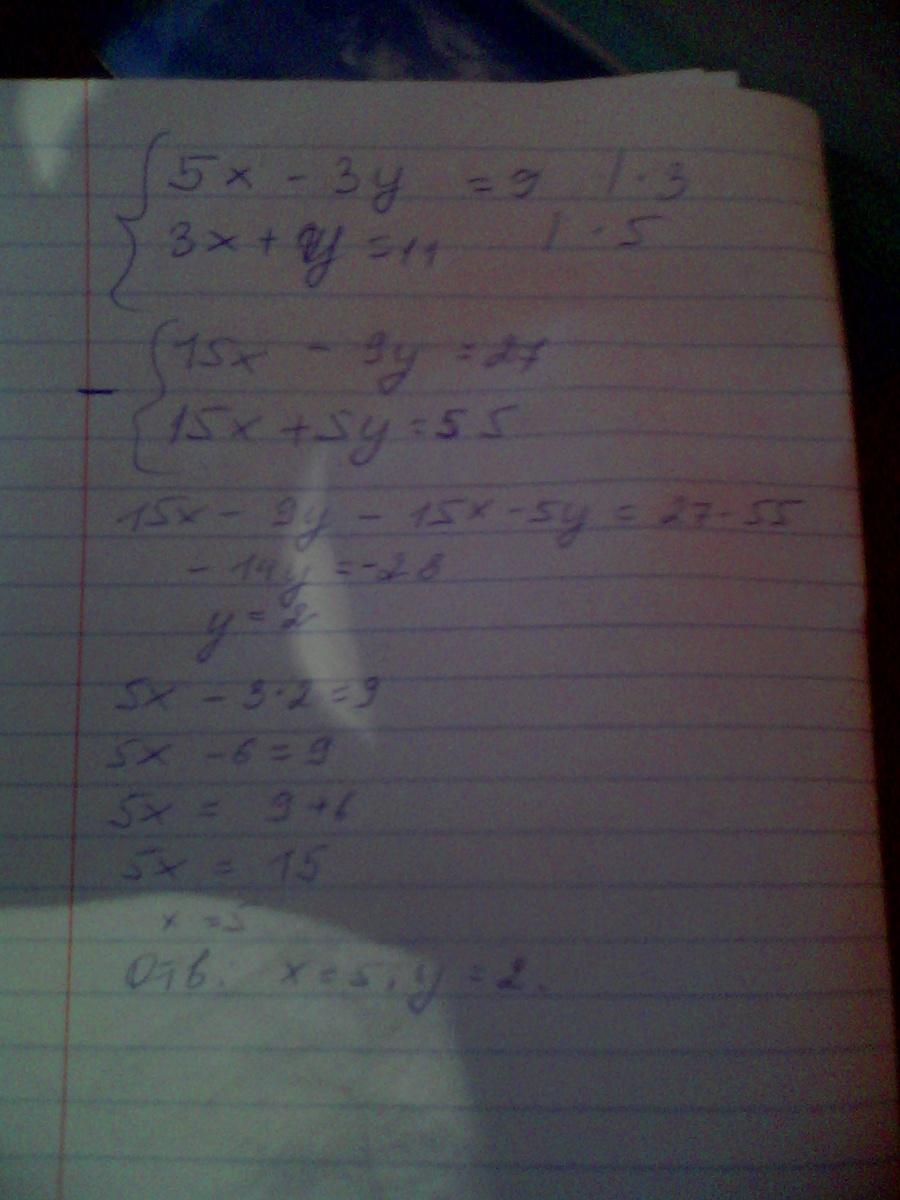 5x - 3y = 9 | · 3
3x + y = 11 | · 5
15x - 9y = 27
15x + 5y = 55
15x - 9y - 15x - 5y = 27 - 55
- 14y = -28
y = 2
5x - 3·2 = 9
5x - 6 = 9
5x = 9 + 6
5x = 15
x = 5
Отв: x = 5, y = 2.